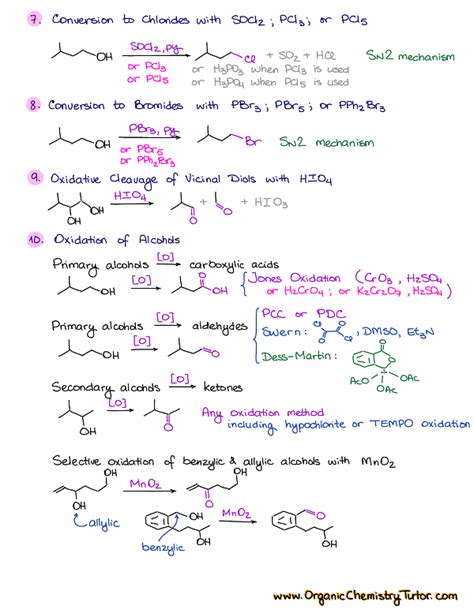 7. Conversion to Chlorides with SOCl2; PCl3; or PCl5
OH
SOCl2, py
or PCl3
or PCl5
Cl + SO2 + HCl
or H3PO3 when PCl3 is used
or H3PO4 when PCl5 is used
SN2 mechanism
8. Conversion to Bromides with PBr3; PBr5; or PPh2Br3
OH
PBr3, py
or PBr5
or PPh2Br3
Br
SN2 mechanism
9. Oxidative Cleavage of Vicinal Diols with HIO4
OH
OH
HIO4
O
+
O
+ HIO3
10. Oxidation of Alcohols
Primary alcohols [O] carboxylic acids
OH
[O]
O
OH
Jones Oxidation (CrO3, H2SO4
or H2CrO4; or K2Cr2O7, H2SO4)
Primary alcohols [O] aldehydes
OH
[O]
O
PCC or PDC
Swern: Cl O O Cl, DMSO, Et3N
Dess-Martin:
O
O
I
AcO OAc
OAc
Secondary alcohols [O] ketones
OH
[O]
O
Any oxidation method
including hypochlorite or TEMPO oxidation
Selective oxidation of benzylic & allylic alcohols with MnO2
OH
OH
MnO2
OH
O
allylic
OH
OH
benzylic
MnO2
O
OH
www.OrganicChemistryTutor.com